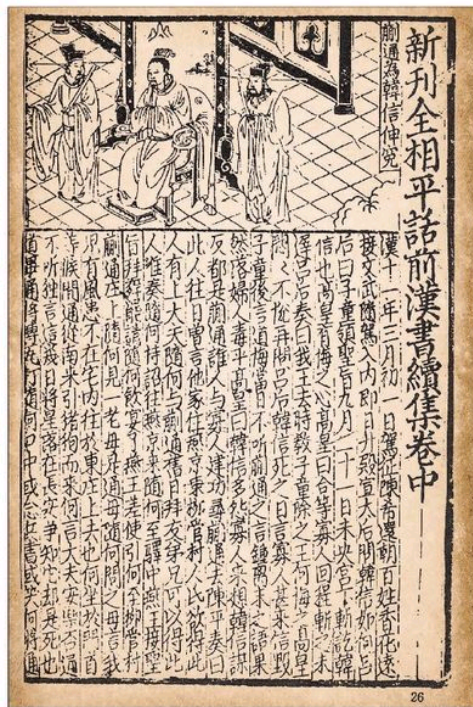 新刊全相平話前漢書續集卷中
蒯通為韓信伸冤
漢十一年三月初一日駕征陳豨還朝百姓香花遠
接文武隨駕入內即日升殿宣太后問韓信如何呂
后曰子童領聖旨九月二十一日未央宮下斬訖韓
信也高皇有悔之心高皇曰合等寡人回程斬之未
遲呂后奏曰我王去時教子童除之王何悔之高皇
悶々不從再問呂后韓信死之日言寡人甚來信毀
子童後言通悔當日不听蒯通之言鍾离末之語果
然落婦人毒手高皇曰韓信多死寡人未想韓信謀
反都是蒯通誰人与寡人建功尋蒯通去陳平奏曰
此人往日曾言他家住燕京東柳管村人氏欲得此
人有上大夫隨何与蒯通舊日拜友弟兄可以得此
人准奏隨何持詔往燕京來隨何至驛中燕王接聖
旨拜罷請隨何飲宴了燕王差使引何至柳管村
蒯通庄上隨何見一老母是通母隨何問之母言我
兒有風患不在宅內往於東庄上去也何坐於門首
等候間通從南來引猪狗而來何言大夫安樂否通
不听独言信哉日將星落在長安争知它却是死也
道畢通將塼瓦打隨何口中或念兵書或笑何將通
26